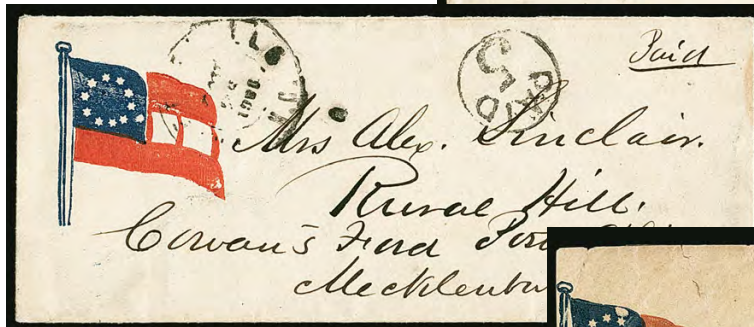 Paid
PAID
5
Mrs Alex. Sinclair.
Rural Hill.
Cowan's Ford Post
Mecklenbur